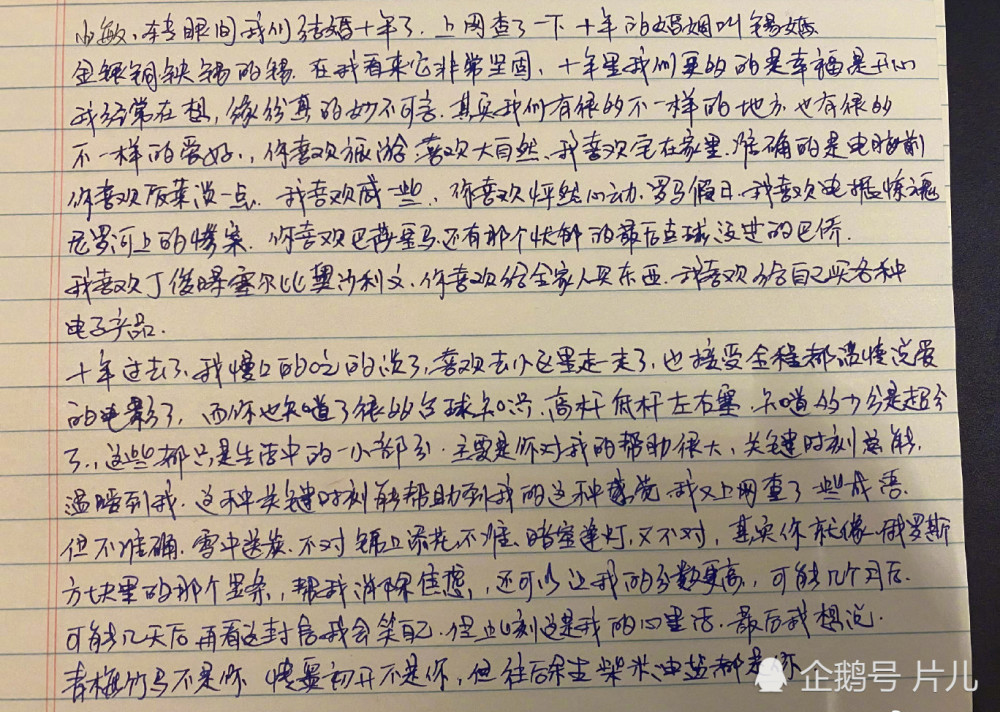 小敏、转眼间我们结婚十年了，上网查了一下十年的婚姻叫锡婚
金银铜铁锡的锡．在我看来它非常坚固，十年里我们要的的是幸福是开心
我经常在想，缘份真的妙不可言．其实我们有很的不一样的地方，也有很的
不一样的爱好，，你喜欢旅游喜欢大自然、我喜欢宅在家里．准确的是电脑前
你喜欢饭菜淡一点、我喜欢咸一些、你喜欢怦然心动、罗马假日．我喜欢电锯惊魂
尼罗河上的惨案．你喜欢巴萨皇马还有那个忧郁的最后点球没进的巴乔．
我喜欢丁俊晖塞尔比奥沙利文．你喜欢给全家人买东西．我喜欢给自己买各种
电子产品．
十年过去了，我慢口的吃的淡了，喜欢去小区里走一走了，也接受全程都谈情说爱
的电影了，而你也知道了很的台球知识、高杆低杆左右塞．知道的少分是超分
了，，这些都只是生活中的一小部分．主要是你对我的帮助很大，关键时刻总能．
温暖到我．这种关键时刻能帮助到我的这种感觉．我又上网查了一些成语．
但不准确．雪中送炭．不对 锦上添花．不准、暗室逢灯，又不对，其实你就像一俄罗斯
方块里的那个竖条，帮我消除焦虑，还可以让我的分数更高，可能几个月后．
可能几天后再看这封信我会笑自己．但此刻这是我的心里话．最后我想说．
青梅竹马不是你 情窦初开不是你，但往后余生柴米油盐都是你．
企鹅号 片儿